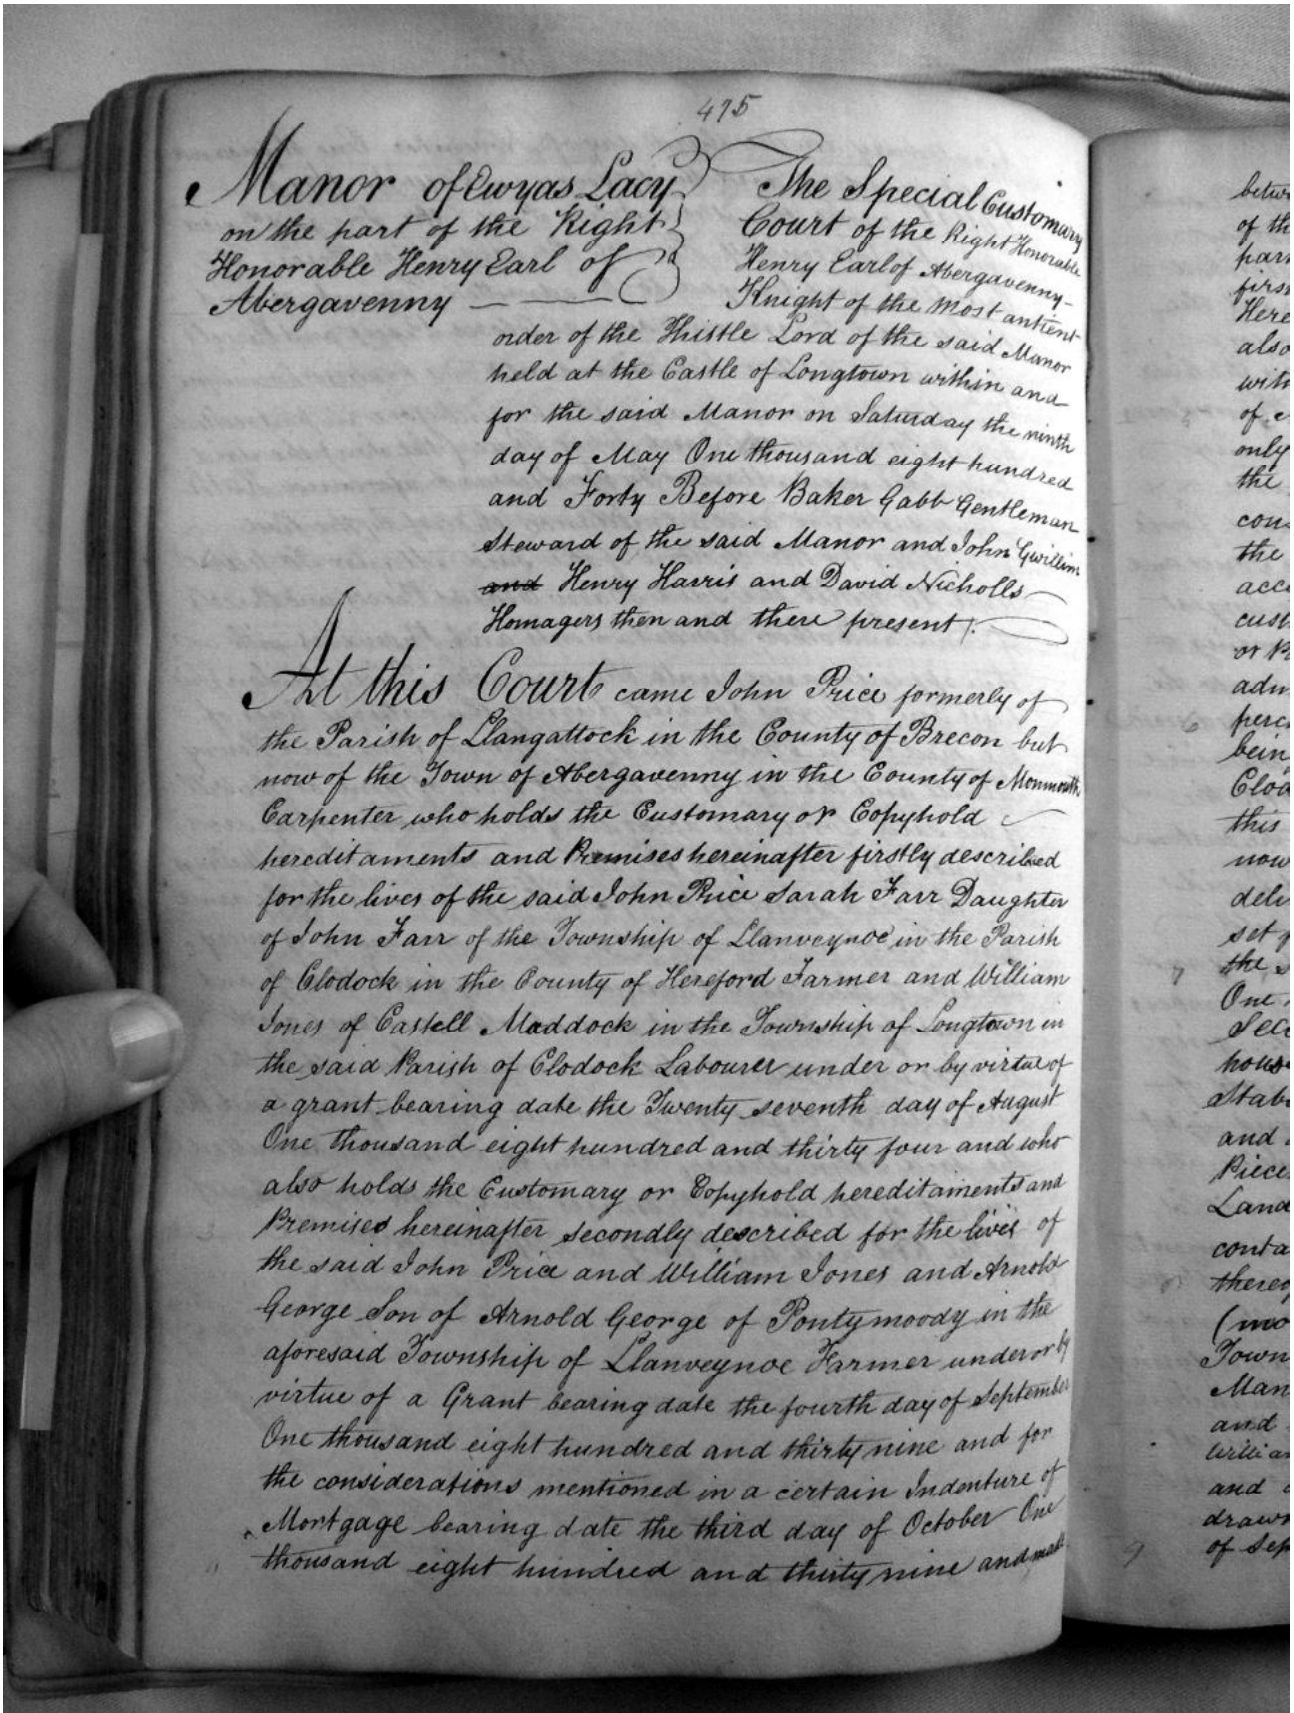 475
Manor of Ewyas Lacy
on the part of the Right
Honorable Henry Earl of
Abergavenny
The Special Customary
Court of the Right Honorable
Henry Earl of Abergavenny
Knight of the most antient
order of the Thistle Lord of the said Manor
held at the Castle of Longtown within and
for the said Manor on Saturday the ninth
day of May One thousand eight hundred
and Forty Before Baker Gabb Gentleman
Steward of the said Manor and John Gwillim
and Henry Harris and David Nicholls
Homagers then and there present.
At this Court came John Price formerly of
the Parish of Llangattock in the County of Brecon but
now of the Town of Abergavenny in the County of Monmouth
Carpenter who holds the Customary or Copyhold
hereditaments and Premises hereinafter firstly described
for the lives of the said John Price Sarah Farr Daughter
of John Farr of the Township of Llanveynoe in the Parish
of Clodock in the County of Hereford Farmer and William
Jones of Castell Maddock in the Township of Longtown in
the said Parish of Clodock Labourer under or by virtue of
a grant bearing date the Twenty seventh day of August
One thousand eight hundred and thirty four and who
also holds the Customary or Copyhold hereditaments and
Premises hereinafter secondly described for the lives of
the said John Price and William Jones and Arnold
George Son of Arnold George of Pontymoody in the
aforesaid Township of Llanveynoe Farmer under or by
virtue of a Grant bearing date the fourth day of September
One thousand eight hundred and thirty nine and for
the considerations mentioned in a certain Indenture of
Mortgage bearing date the third day of October One
thousand eight hundred and thirty nine and made
of th
also
only
the
the
or
this
now
set
the
One
and
Land
Town
and
and
of Sep